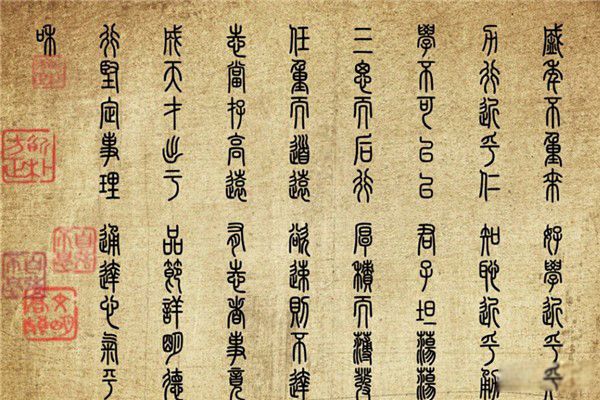 盛年不重來 好學近乎
力行近乎仁 知恥近乎勇
學不可以已 君子坦蕩蕩
三思而后行 厚積而薄發
任重而道遠 欲速則不達
志當存高遠 有志者事竟
成天才出于 品節詳明德
行堅定事理 通達心氣平
和